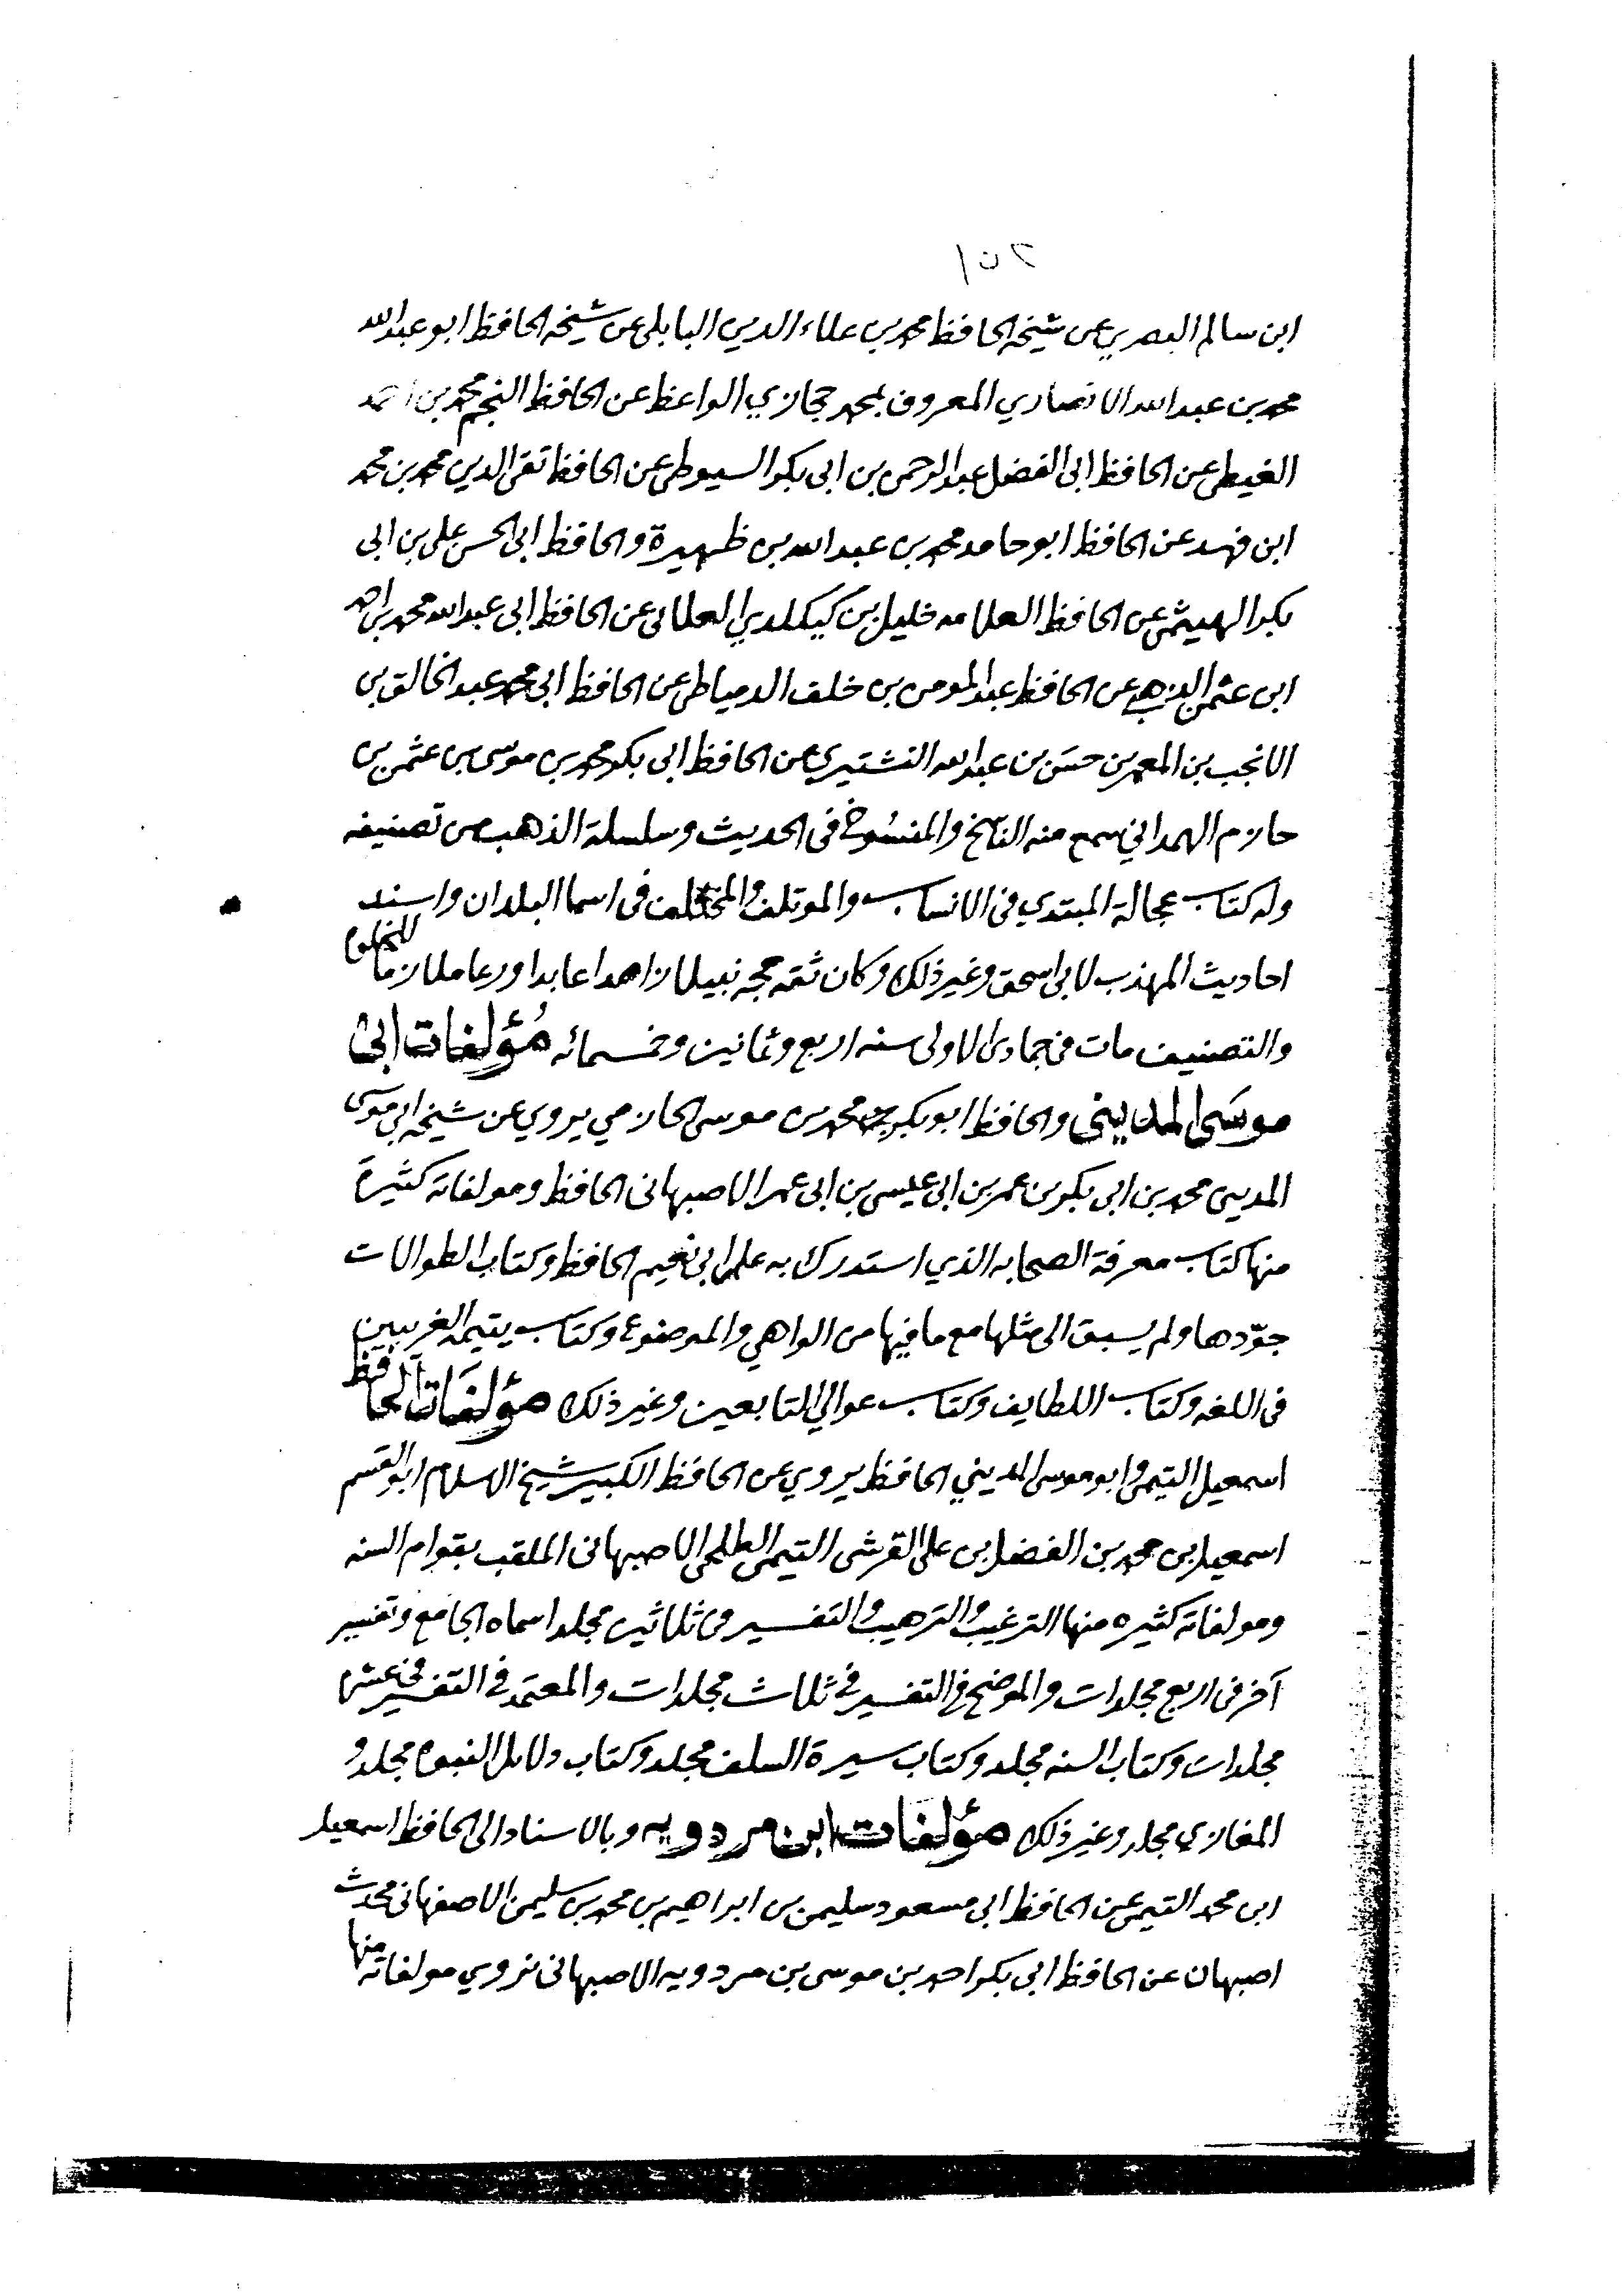 ١٥٢
ابن سالم البصري عن شيخه الحافظ محمد بن علاء الدين البابلي عن شيخه الحافظ ابو عبد الله
محمد بن عبد الله الانصاري المعروف بمحمد حجازي الواعظ عن الحافظ النجم محمد بن احمد
الغيطي عن الحافظ ابي الفضل عبد الرحمن بن ابي بكر السيوطي عن الحافظ تقي الدين محمد بن محمد
ابن فهد عن الحافظ ابو حامد محمد بن عبد الله بن ظهيرة والحافظ ابي الحسن علي بن ابي
بكر الهيثمي عن الحافظ العلامه خليل بن كيكلدي العلائي عن الحافظ ابي عبد الله محمد بن احمد
ابن عثمن الذهبي عن الحافظ عبد المومن بن خلف الدمياطي عن الحافظ ابي محمد عبد الخالق بن
الانجب بن المعمر بن حسَن بن عبد الله النشتيري عن الحافظ ابي بكر محمد بن موسى بن عثمن بن
حازم الهمداني سمع منه الناسخ والمنسُوخ في الحديث وسلسلة الذهب من تصنيفه
وله كتاب عجالة المبتدي في الانساب والموتلف والمختلف في اسما البلدان واسند
احاديث المهذب لابي اسحق وغير ذلك وكان ثقه حجه نبيلا زاهدا عابدا ورعا ملازما للخلوه
والتصنيف مات في جمادى الاولى سنه اربع وثمانين وخمسمائه مُؤلفات ابي
موسَى المديني والحافظ ابو بكر محمد بن موسى الحازمي يروي عن شيخه ابي موسى
المديني محمد بن ابي بكر بن عمر بن ابي عيسى بن ابي عمر الاصبهاني الحافظ ومولفاته كثيرة
منها كتاب معرفة الصحابه الذي استدرك به على ابي نعيم الحافظ وكتاب الطوالات
جوّدها ولم يسبق الى مثلها مع ما فيها من الواهي والموضوع وكتاب يتيمه الغريبين
في اللغه وكتاب اللطايف وكتاب عوالي التابعين وغير ذلك مؤلفَات الحافظ
اسمعيل التيمي وابو موسى المديني الحافظ يروي عن الحافظ الكبير شيخ الاسلام ابو القسم
اسمعيل بن محمد بن الفضل بن علي القرشي التيمي الطلحي الاصبهاني الملقب بقوام السنه
ومولفاته كثيره منها الترغيب والترهيب والتفسير في ثلاثين مجلد اسماه الجامع وتفسير
آخر في اربع مجلدات والموضح في التفسير في ثلاث مجلدات والمعتمد في التفسير في عشر
مجلدات وكتاب السنه مجلد وكتاب سيرة السلف مجلد وكتاب دلائل النبوه مجلد و
المغازي مجلد وغير ذلك مؤلفات ابن مردويه وبالاسناد الى الحافظ اسمعيل
ابن محمد التيمي عن الحافظ ابي مسعود سليمن بن ابراهيم بن محمد بن سليمن الاصفهاني محدث
اصبهان عن الحافظ ابي بكر احمد بن موسى بن مردويه الاصبهاني نروي مولفاته منها